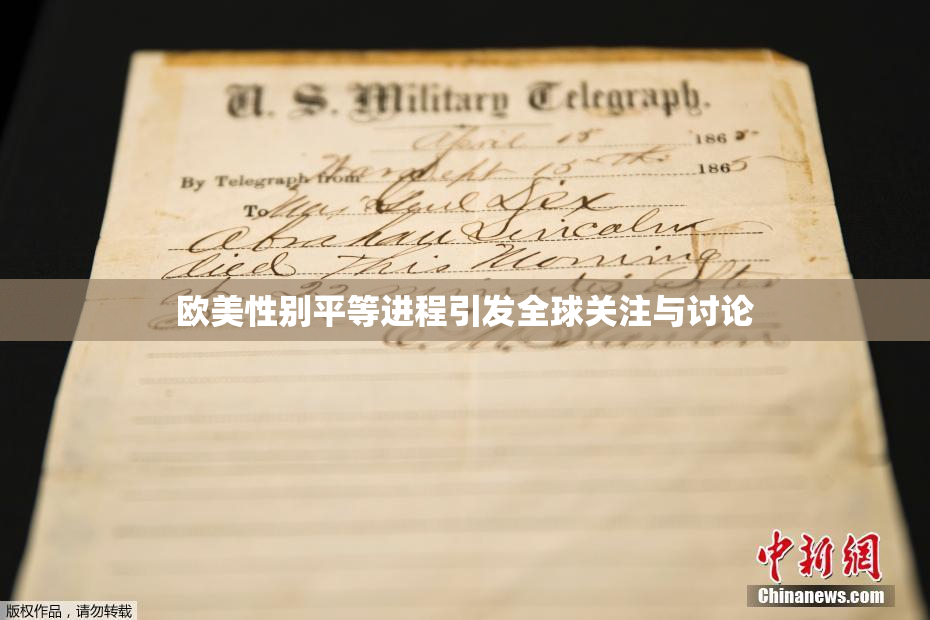 U. S. Military Telegraph.
April 15 1865
By Telegraph from War Dept 15th 1865
To Maj Genl Dix
Abraham Lincoln
died This Morning
at 22 minutes after
欧美性别平等进程引发全球关注与讨论
E. M. Stanton
中新網
Chinanews.com
版权作品，请勿转载